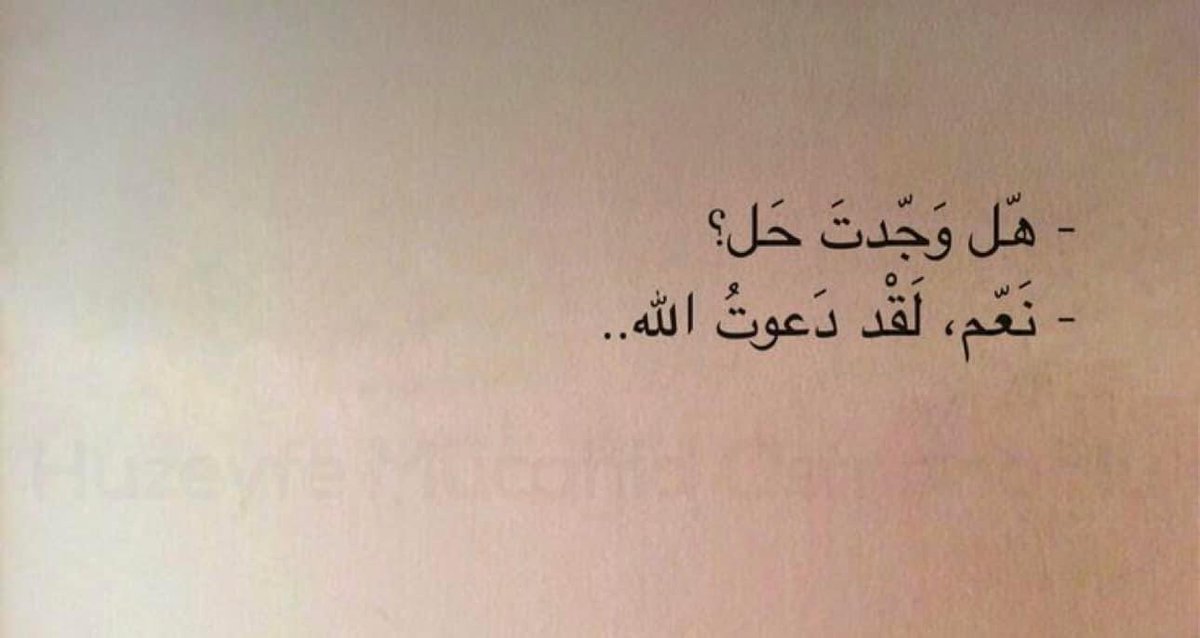 - هّل وَجّدتَ حَل؟
- نَعّم، لَقْد دَعوتُ الله..
Huzeyfe Mücahid